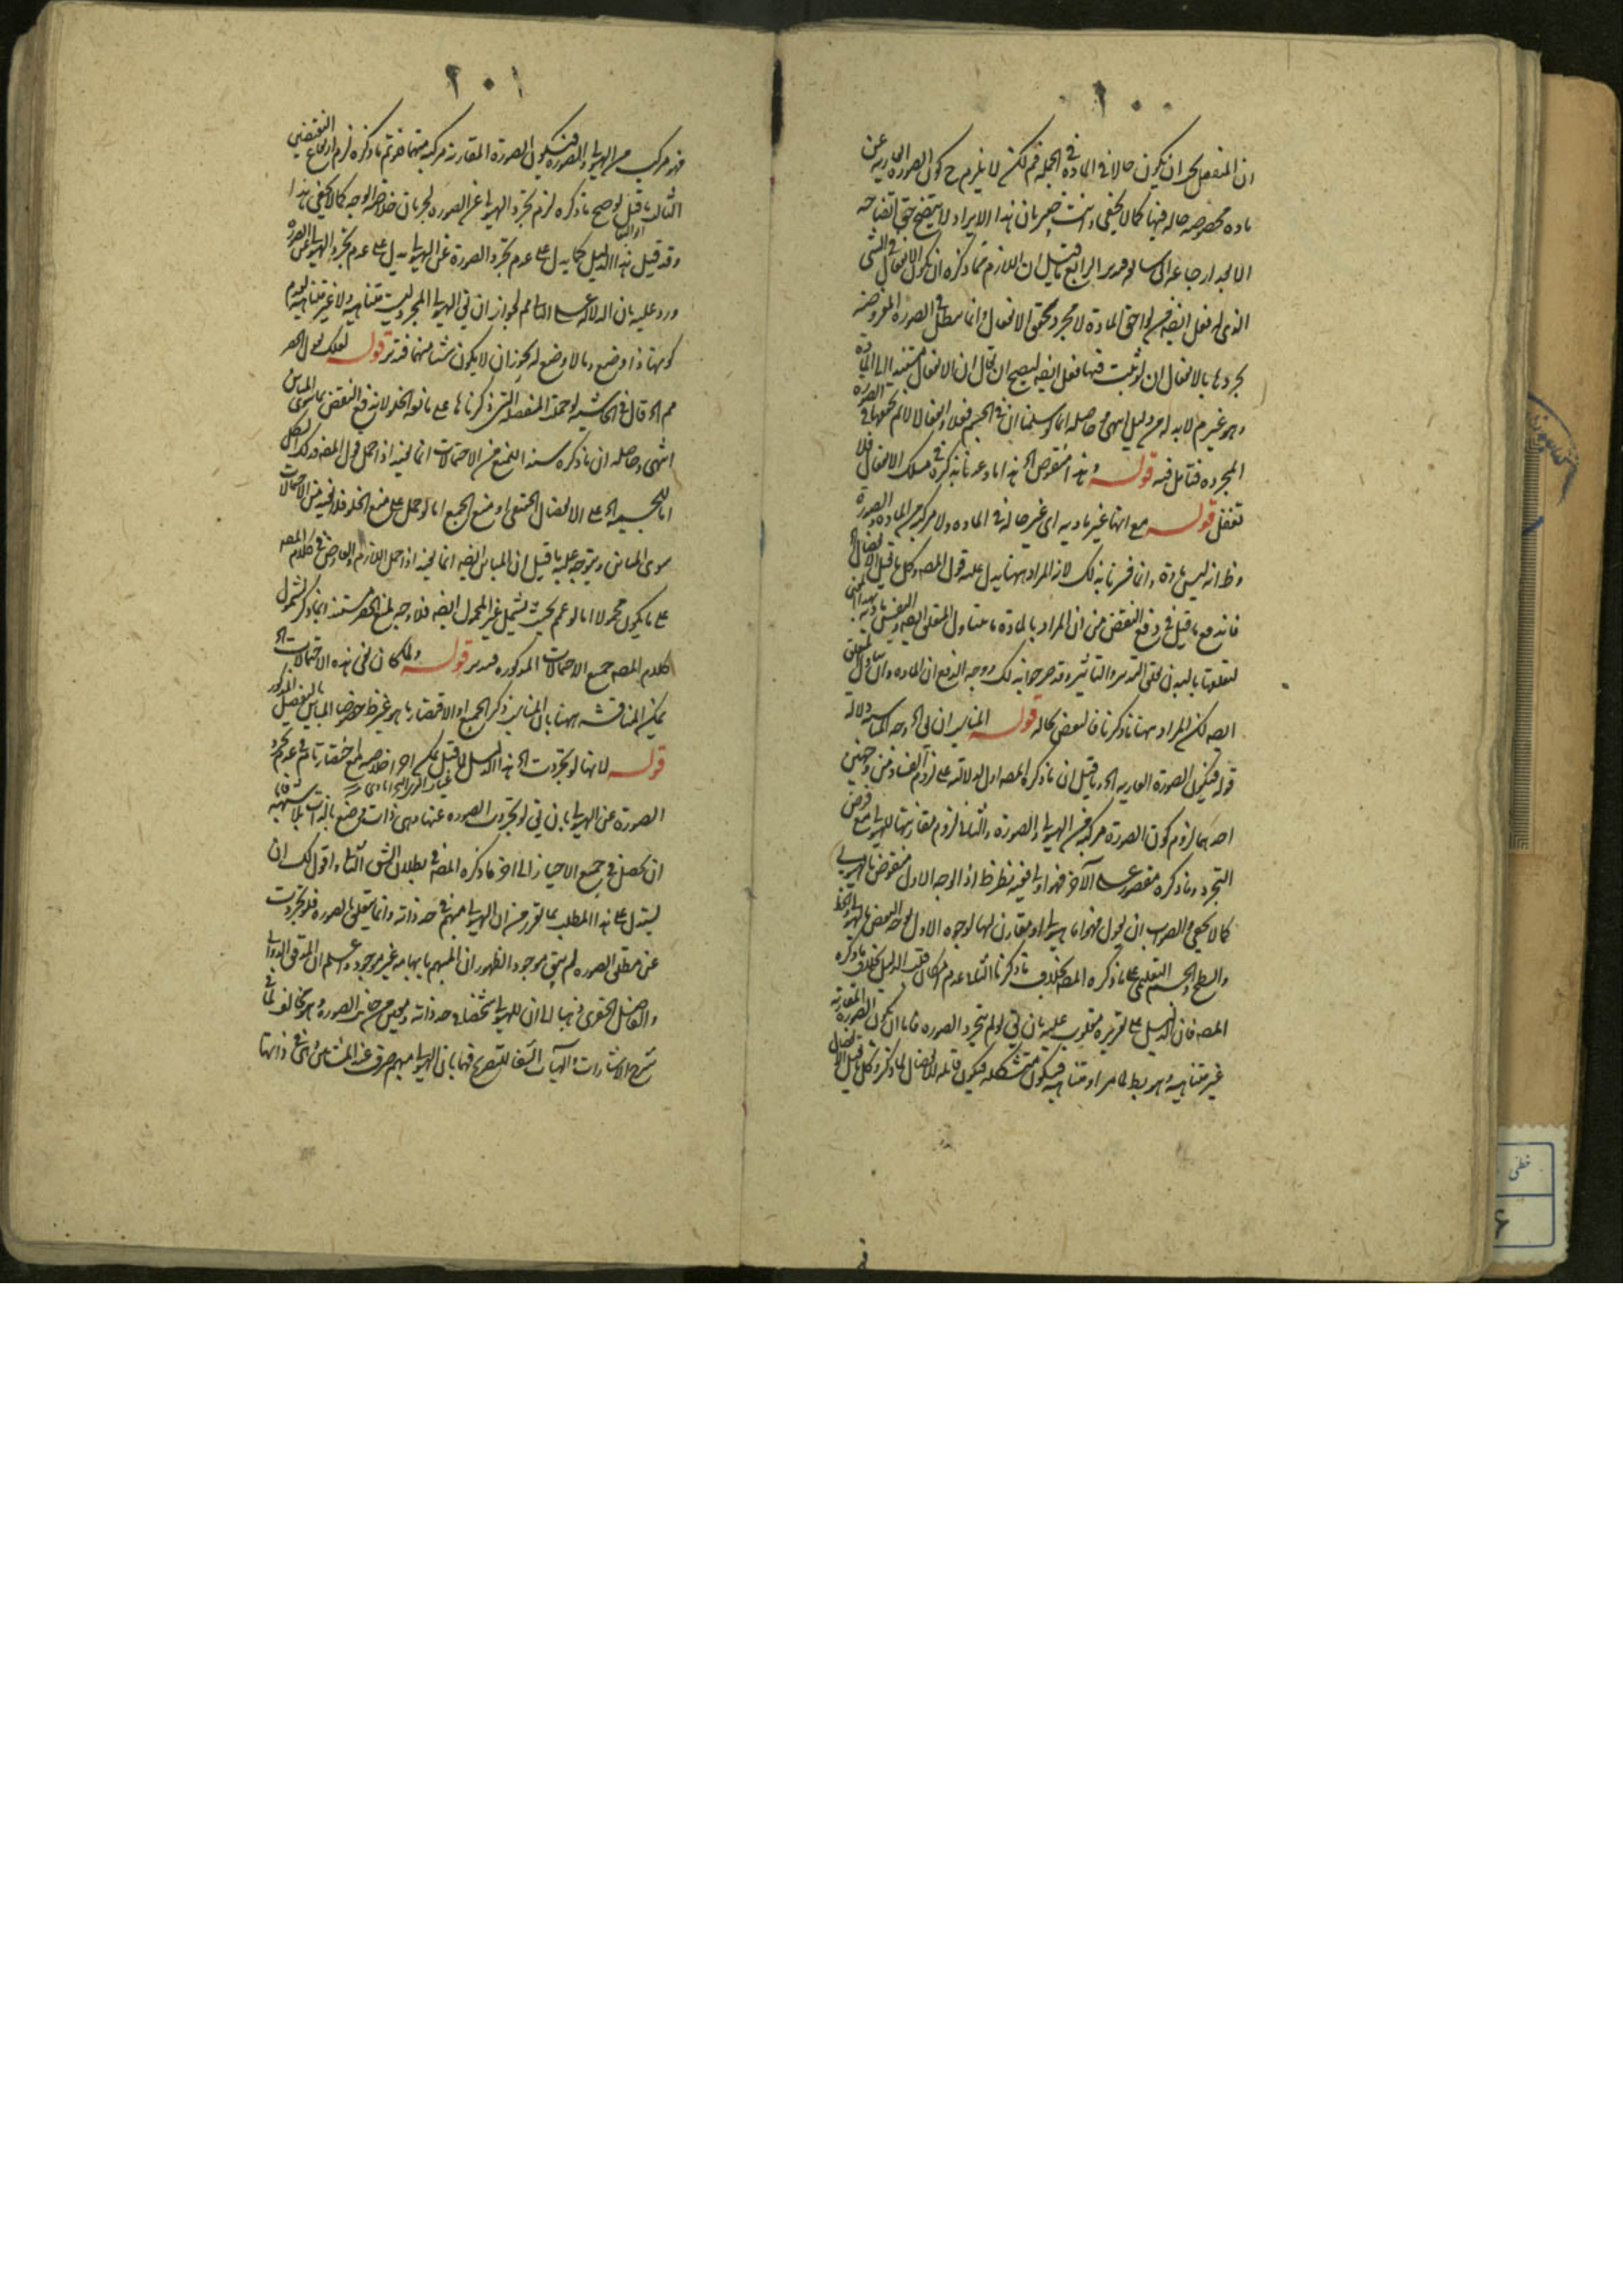 ١٠٠
ان المنفعل يجب ان يكون حالا في المادة في الجملة فم لكن لا يلزم ح كون الصورة العارية عن
مادة مخصوصة حالة فيها كما لا يخفى وانت خبير بان هذا الايراد لا يتضح حق اتضاحه
الا بعد ارجاعه الى الرابع قيل ان اللازم مما ذكره ان يكون الانفعال في الشئ
الذي له فعل ايضا من لواحق المادة لا مجرد تحقق الانفعال وانما يبطل في الصورة المفروضة
تجردها بالانفعال ان لو ثبت فيها فعل ايضا ليصح ان يقال ان الانفعال مستند الى المادة
وهو غير م لا بد له من دليل انتهى وحاصله انا سلمنا ان في الجسم فعلا وانفعالا لا نم تحققهما في الصورة
المجردة فتأمل فيه قوله وهذا منقوض الخ هذا ما وعدنا بذكره في مسلك الانفعال فلا
تغفل قوله مع انها غير مادية اي غير حالة في المادة ولا مركبة من المادة والصورة
وظ انه ليس مادة وانما فسرنا بذلك لان المراد ههنا يدل عليه قول المصه وكل ما يقبل الانفصال الخ
فاندفع ما قيل في دفع النقض من ان المراد بالمادة ما يتناول المتعلق ايضا والنفس مادية بهذا المعنى
لتعلقها بالبدن تعلق التدبير والتاثير وقد صرحوا بذلك ووجه الدفع ان المادة وان يتناول المتعلق
ايضه لكن المراد ههنا ما ذكرنا فالنقض بحاله قوله المناسب ان يق الخ وجه المناسبة دلالة
قوله فتكون الصورة العارية الخ وما قيل ان ما ذكره المصه اولى لدلالته على لزوم الفساد من وجهين
احدهما لزوم كون الصورة مركبة من الهيولى والصورة والثاني لزوم مقارنتها للهيولى مع فرض
التجرد وما ذكره مقصور على الآخر فهو اولى ففيه نظر ظ اذ الوجه الاول منقوض بالهيولى
كما لا يخفى والصواب ان يقول فهو اما هيولى او مقارن لها لوجوه الاول لتوجه النقض بالهيولى والخط
والسطح والجسم التعليمي على ما ذكره المصه بخلاف ما ذكرنا الثاني عدم امكان قلب الدليل بخلاف ما ذكره
المصه فان الدليل على تقريره مقلوب عليه بان يق لو لم يتجرد الصورة فاما ان تكون الصورة المقارنة
غير متناهية وهو بط لما مر او متناهية فتكون متشكلة فتكون قابلة للانفصال لما ذكر وكل ما يقبل الانفصال
١٠٢
فهو مركب من الهيولى والصورة فتكون الصورة المقارنة مركبة منهما فلو تم ما ذكره لزم ارتفاع النقيضين
الثالث ما قيل لو صح ما ذكره لزم تجرد الهيولى عن الصورة لجريان خلاصة الوجه كما لا يخفى هذا
وقد قيل هذا الدليل كما يدل على عدم تجرد الصورة عن الهيولى يدل على عدم تجرد الهيولى عن الصورة
ورد عليه بان الدلالة على الثاني مم لجواز ان يق الهيولى المجردة ليست متناهية ولا غير متناهية لعدم
كونها ذا وضع وما لا وضع له يجوز ان لا يكون شيئا منهما فتدبر قوله لعلك تقول الحصر
مم الخ قال في الحاشية لو حملت المنفصلة التي ذكرناها على مانعة الخلو لاندفع النقض بما سوى المباين
انتهى وحاصله ان ما ذكره سند المنع من الاحتمالات انما يتجه اذا حمل قول المصه وذلك الشكل
اما للجسمية الخ على الانفصال الحقيقي او منع الجمع اما لو حمل على منع الخلو فلا يتجه من الاحتمالات
سوى المباين ويتوجه عليه ما قيل ان المباين ايضه انما يتجه اذا حمل اللازم والعارض في كلام المصه
على ما يكون محمولا اما لو عمم بحيث يشمل غير المحمول ايضه فلا وجه لمنع الحصر مستندا بما ذكر لشمول
كلام المصه جميع الاحتمالات المذكورة فتدبر قوله ولما كان نفي هذه الاحتمالات الخ
يمكن المناقشة ههنا بان المناسب ذكر الجميع او الاقتصار بما هو غير ظ خصوصا المباين بالتفصيل المذكور
قوله لانها لو تجردت الخ هذا الدليل
الصورة عن الهيولى بان يق لو تجردت الصورة عنها وهي ذات وضع بالذات بلا شبهة فاما
ان تحصل في جميع الاحياز الى اخر ما ذكره المصه في بطلان الشق الثاني واقول لك ان
تستدل على هذا المطلب بما تقرر من ان الهيولى مبهم في حد ذاته وانما يتعين بالصورة فلو تجردت
عن مطلق الصورة لم يبق موجودا لظهور ان المبهم بابهامه غير موجود واعلم ان المحقق الدواني
والفاضل الخفري ذهبا الى ان للهيولى تشخصا في حد ذاته ويتعين من جانب الصورة وهو مخالف لما في
شرح الاشارات والهيات الشفا للتصريح فيها بان الهيولى مبهم صرف عند المشائين في ذاتها